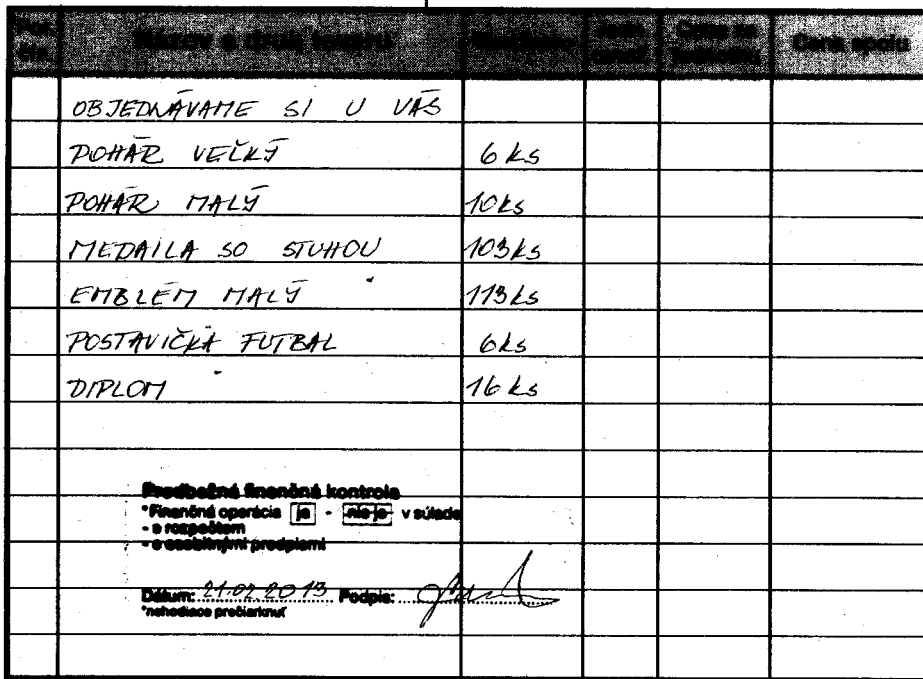 Por. Názov a druh tovaru Cena za Cena spolu
OBJEDNÁVAME SI U VÁS
POHÁR VEĽKÝ 6 ks
POHÁR MALÝ 10ks
MEDAILA SO STUHOU 103ks
EMBLÉM MALÝ 113ks
POSTAVIČKA FUTBAL 6ks
DIPLOM 16 ks
Predbežná finančná kontrola
*Finančná operácia je - nie je v súlade
- s rozpočtom
- s osobitnými predpismi
Dátum: 21.02.2013 Podpis:
*nehodiace prečiarknuť